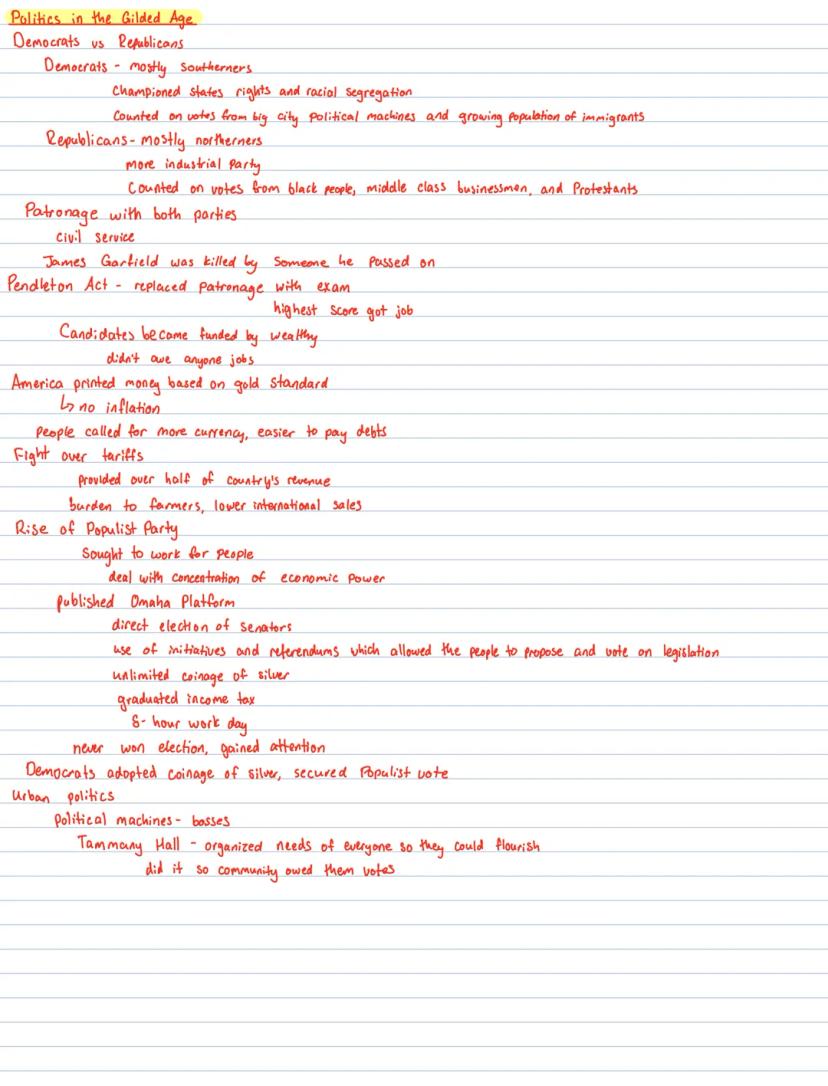 Politics in the Gilded Age
Democrats vs Republicans
Democrats - mostly southerners
Championed states rights and racial segregation
Counted on votes from big city political machines and growing population of immigrants
Republicans - mostly northerners
more industrial party
Counted on votes from black people, middle class businessmen, and Protestants
Patronage with both parties
civil service
James Garfield was killed by someone he passed on
Pendleton Act - replaced patronage with exam
highest score got job
Candidates became funded by wealthy
didn't owe anyone jobs
America printed money based on gold standard
↳ no inflation
People called for more currency, easier to pay debts
Fight over tariffs
provided over half of country's revenue
burden to farmers, lower international sales
Rise of Populist Party
Sought to work for people
deal with concentration of economic power
published Omaha Platform
direct election of senators
use of initiatives and referendums which allowed the people to propose and vote on legislation
unlimited coinage of silver
graduated income tax
8-hour work day
never won election, gained attention
Democrats adopted coinage of silver, secured Populist vote
Urban politics
Political machines - bosses
Tammany Hall - organized needs of everyone so they could flourish
did it so community owed them votes